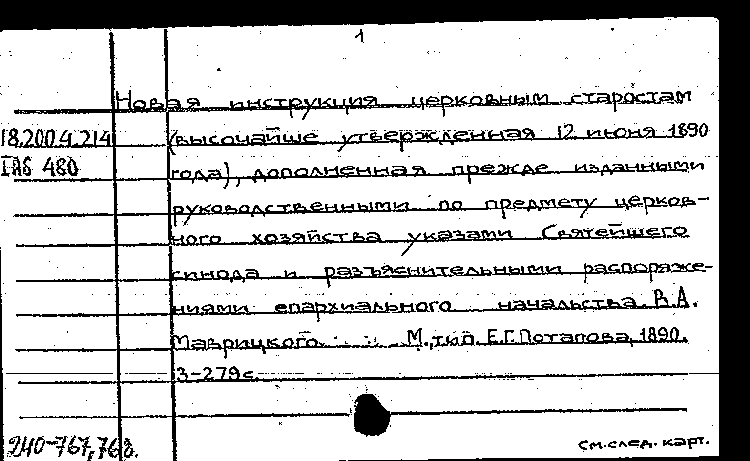 1
Новая инструкция церковным старостам
18.200.4.214 (высочайше утвержденная 12 июня 1890
года), дополненная прежде изданными
руководственными по предмету церков-
ного хозяйства указами Святейшего
синода и разъяснительными распоряже-
ниями епархиального начальства. В.А.
Маврицкого. М., тип. Е.Г. Потапова, 1890.
3-279с.
240-767,768.
см. след. карт.